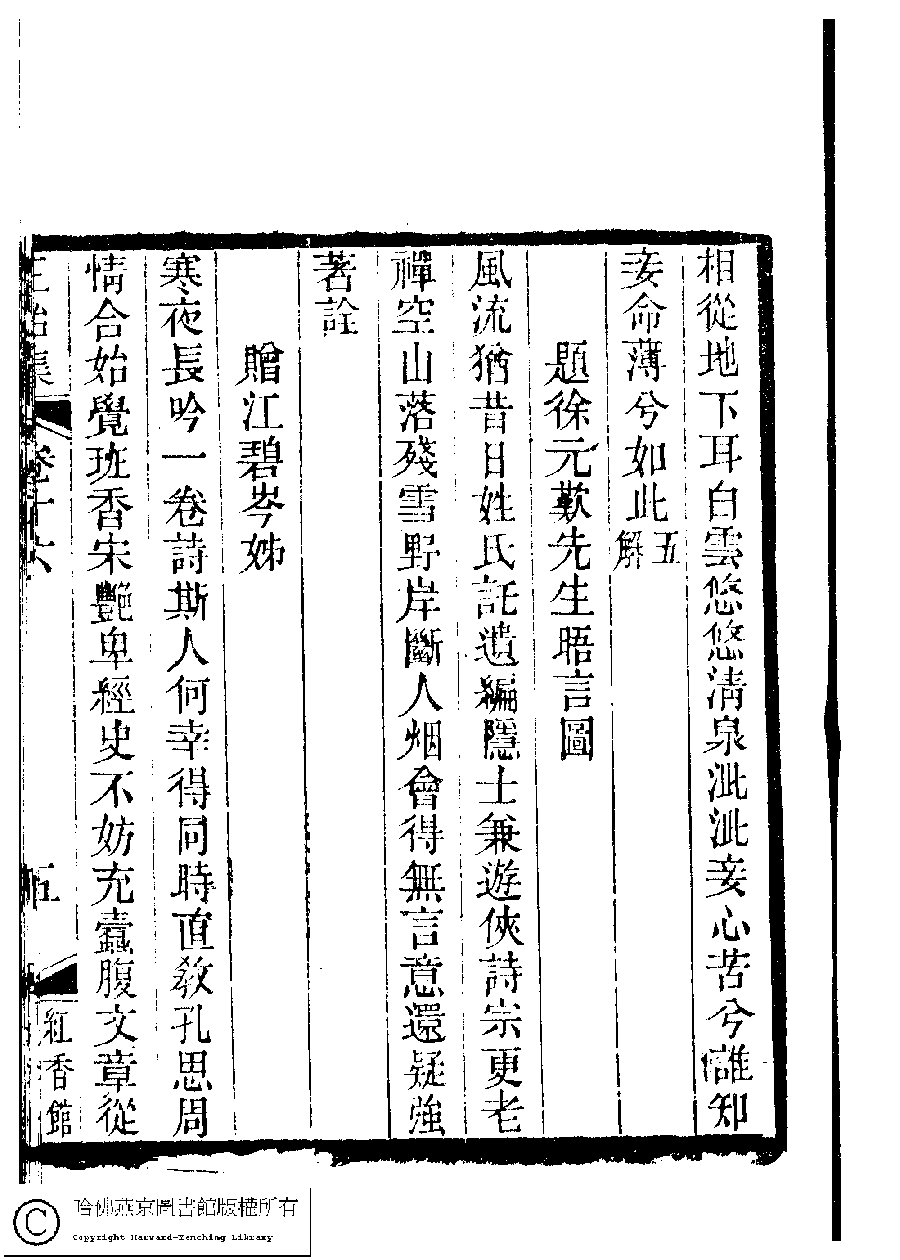 相從地下耳白雲悠悠清泉泚泚妾心苦兮誰知
妾命薄兮如此五解
題徐元歎先生晤言圖
風流猶昔日姓氏託遺編隱士兼遊俠詩宗更老
禪空山落殘雪野岸斷人烟會得無言意還疑強
著詮
贈江碧岑姊
寒夜長吟一卷詩斯人何幸得同時直教孔思周
情合始覺班香宋艷卑經史不妨充蠹腹文章從
正始集 卷十六 五 紅香館
哈佛燕京圖書館版權所有
Copyright Harvard-Yenching Library